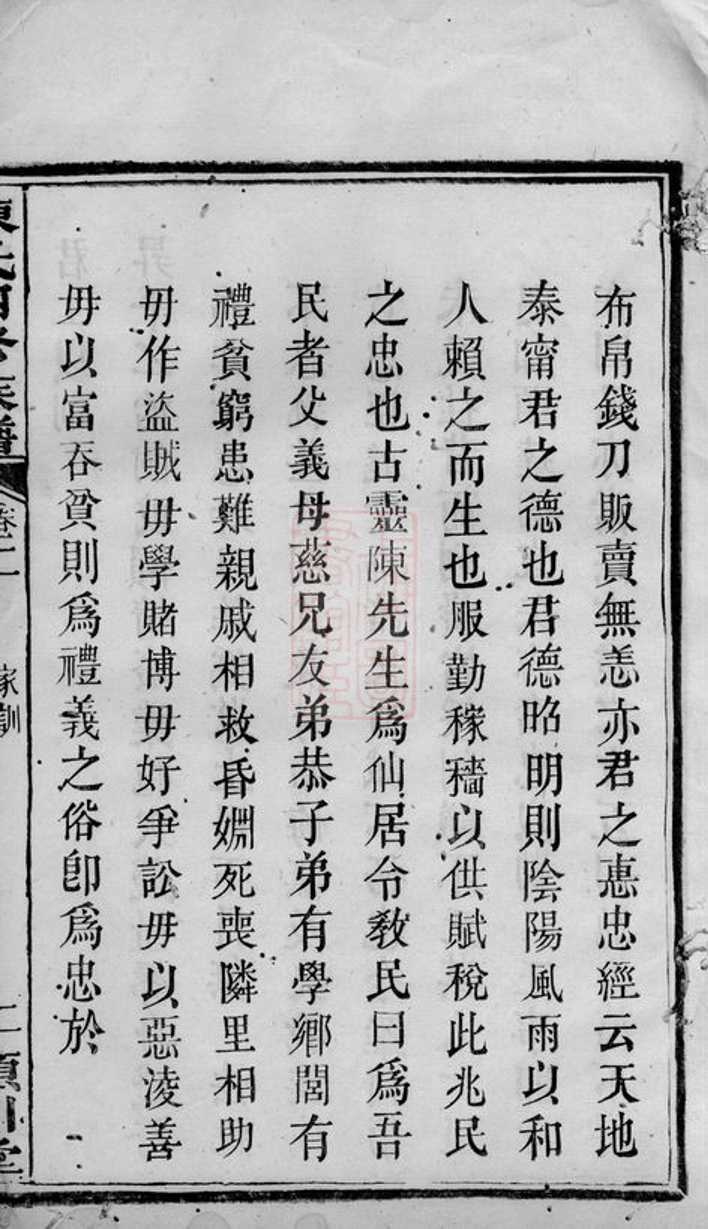 布帛錢刀販賣無恙亦君之惠忠經云天地
泰甯君之德也君德昭明則陰陽風雨以和
人賴之而生也服勤稼穡以供賦稅此兆民
之忠也古靈陳先生爲仙居令敎民曰爲吾
民者父義母慈兄友弟恭子弟有學鄉閭有
禮貧窮患難親戚相救昏婣死喪隣里相助
毋作盜賊毋學賭博毋好爭訟毋以惡淩善
毋以富吞貧則爲禮義之俗卽爲忠於
陳氏四修族譜 卷二 家訓 二 潁川堂